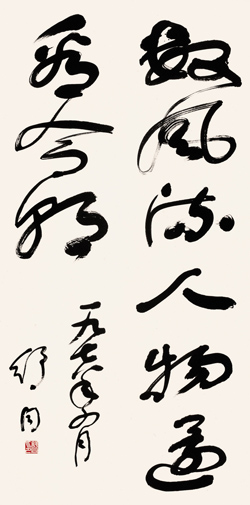 数风流人物还
看今朝
一九七八年六月
舒同